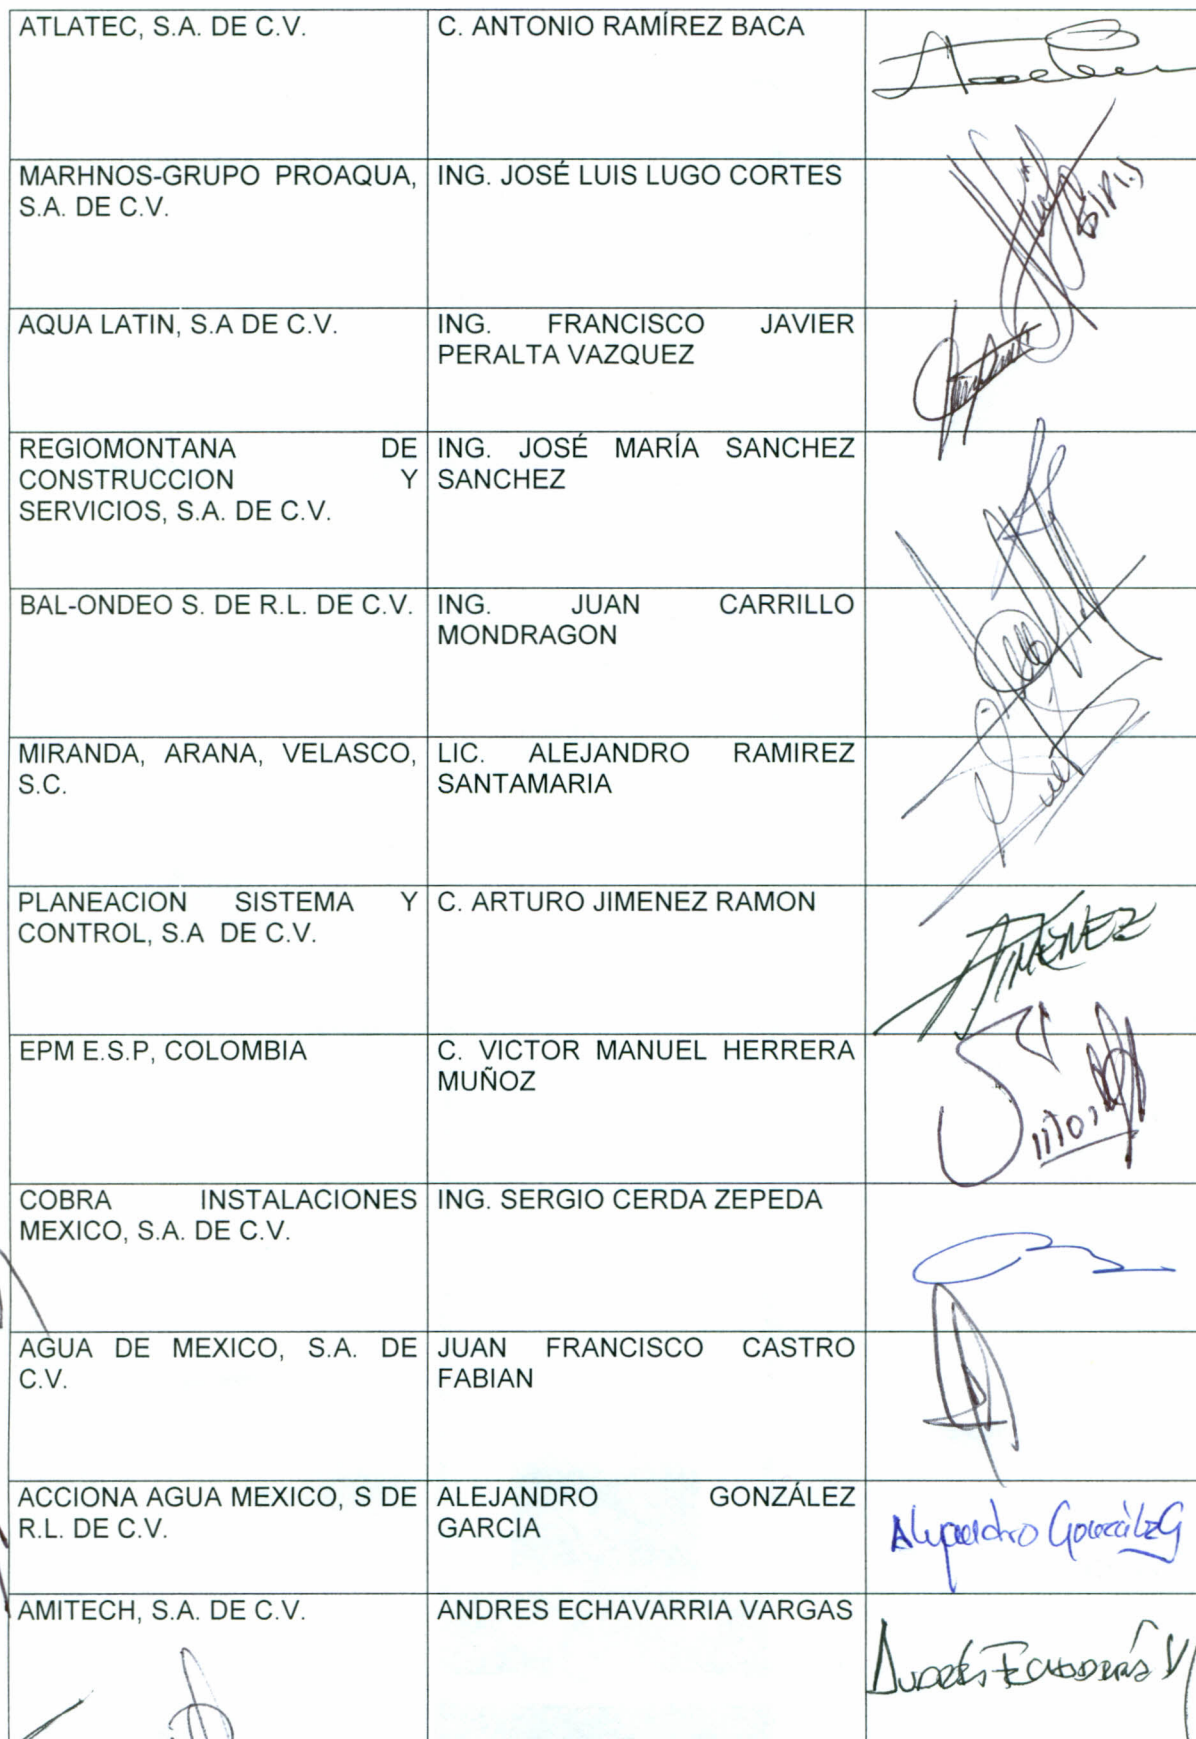 ATLATEC, S.A. DE C.V.
C. ANTONIO RAMÍREZ BACA
MARHNOS-GRUPO PROAQUA,
S.A. DE C.V.
ING. JOSÉ LUIS LUGO CORTES
AQUA LATIN, S.A DE C.V.
ING. FRANCISCO JAVIER
PERALTA VAZQUEZ
REGIOMONTANA DE
CONSTRUCCION Y
SERVICIOS, S.A. DE C.V.
ING. JOSÉ MARÍA SANCHEZ
SANCHEZ
BAL-ONDEO S. DE R.L. DE C.V.
ING. JUAN CARRILLO
MONDRAGON
MIRANDA, ARANA, VELASCO,
S.C.
LIC. ALEJANDRO RAMIREZ
SANTAMARIA
PLANEACION SISTEMA Y
CONTROL, S.A DE C.V.
C. ARTURO JIMENEZ RAMON
JIMENEZ
EPM E.S.P, COLOMBIA
C. VICTOR MANUEL HERRERA
MUÑOZ
COBRA INSTALACIONES
MEXICO, S.A. DE C.V.
ING. SERGIO CERDA ZEPEDA
AGUA DE MEXICO, S.A. DE
C.V.
JUAN FRANCISCO CASTRO
FABIAN
ACCIONA AGUA MEXICO, S DE
R.L. DE C.V.
ALEJANDRO GONZÁLEZ
GARCIA
Alejandro González G
AMITECH, S.A. DE C.V.
ANDRES ECHAVARRIA VARGAS